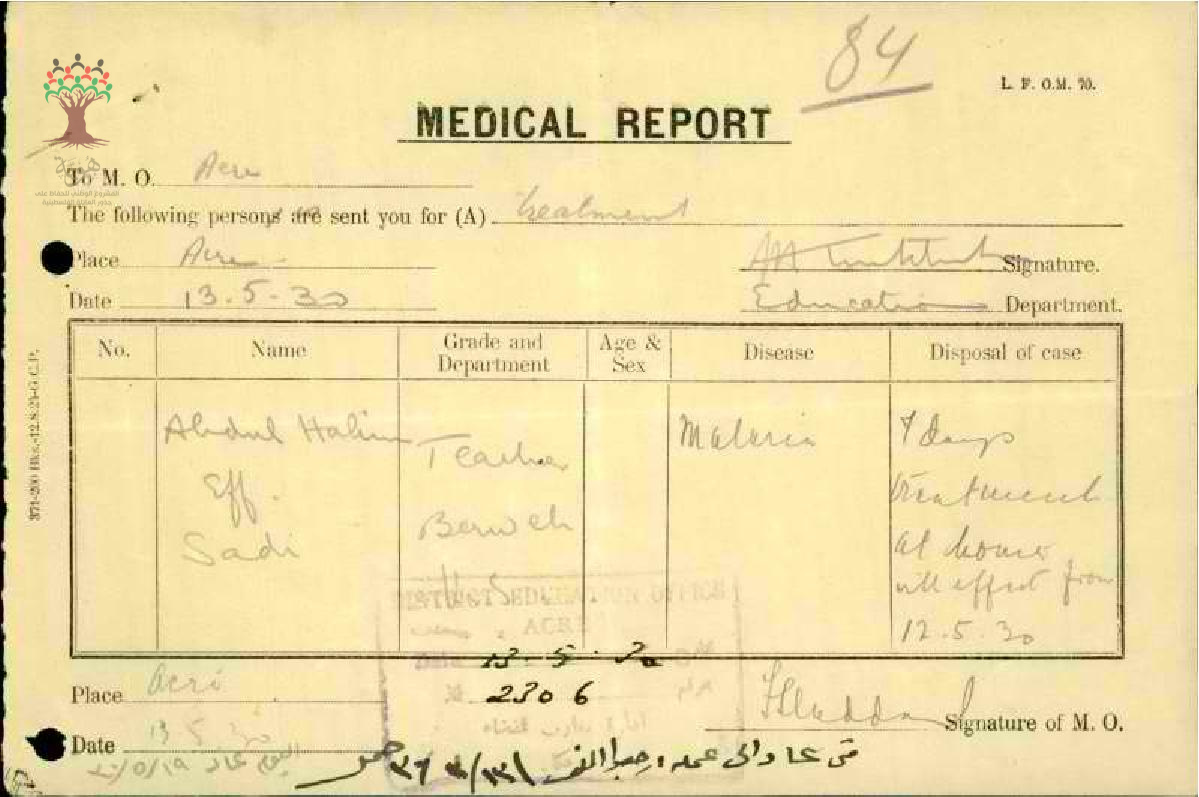 84
L. F. O.M. 70.
MEDICAL REPORT
هوية
المشروع الوطني للحفاظ على
جذور العائلة الفلسطينية
To M. O. Acre
The following persons are sent you for (A) Treatment
Place Acre
Signature.
Date 13.5.30
Education Department.
No. Name Grade and Department Age & Sex Disease Disposal of case
Abdul Halim Teacher Malaria 7 days
Eff. Berweh treatment
Sadi at home
with effect from
12.5.30
DISTRICT EDUCATION OFFICE
ACRE
Date 13.5.30
2306
Place Acre
Signature of M. O.
Date 13 5